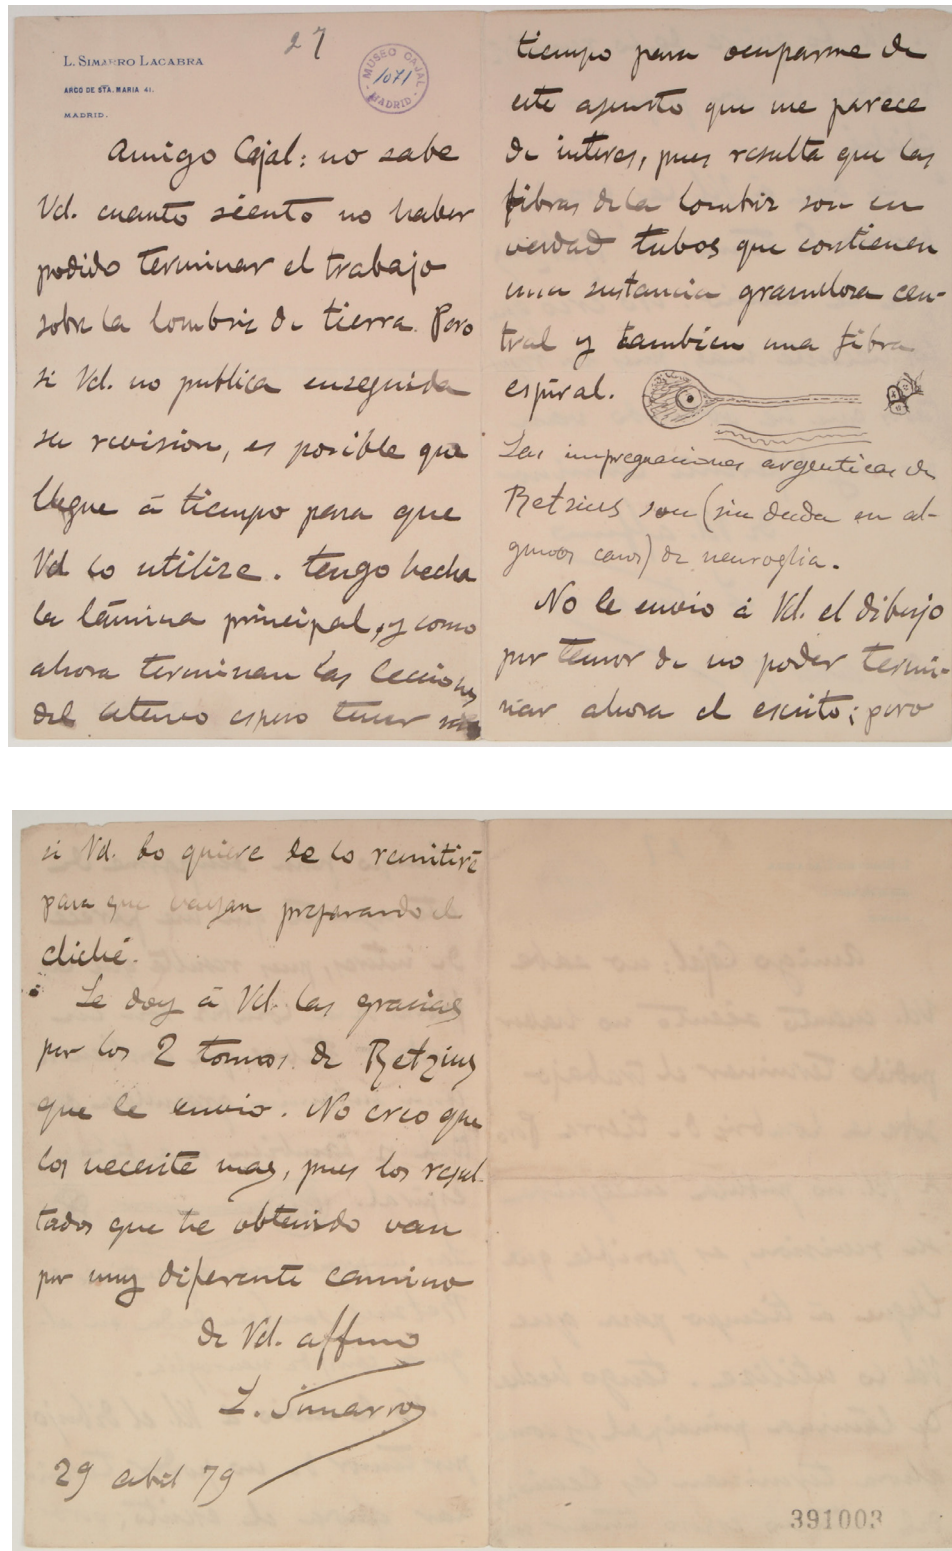 27
L. SIMARRO LACABRA
ARCO DE STA. MARIA 41.
MADRID.
MUSEO CAJAL
1071
MADRID
Amigo Cajal: no sabe
Vd. cuanto siento no haber
podido terminar el trabajo
sobre la lombriz de tierra. Pero
si Vd. no publica enseguida
su revision, es posible que
llegue á tiempo para que
Vd lo utilize. tengo hecha
la lámina principal, y como
ahora terminan las lecciones
del ateneo espero tener mas
tiempo para ocuparme de
este asunto que me parece
de interes, pues resulta que las
fibras de la lombriz son en
verdad tubos que contienen
una sustancia granulosa cen-
tral y tambien una fibra
espiral.
Las impregnaciones argenticas de
Retzius son (sin duda en al-
gunos casos) de neuroglia.
No le envio á Vd. el dibujo
por temor de no poder termi-
nar ahora el escrito; pero
si Vd. lo quiere se lo remitiré
para que vayan preparando el
cliché.
Le doy á Vd. las gracias
por los 2 tomos de Retzius
que le envio. No creo que
los necesite mas, pues los resul-
tados que he obtenido van
por muy diferente camino
de Vd. affmo
L. Simarro
29 abril 79
391003